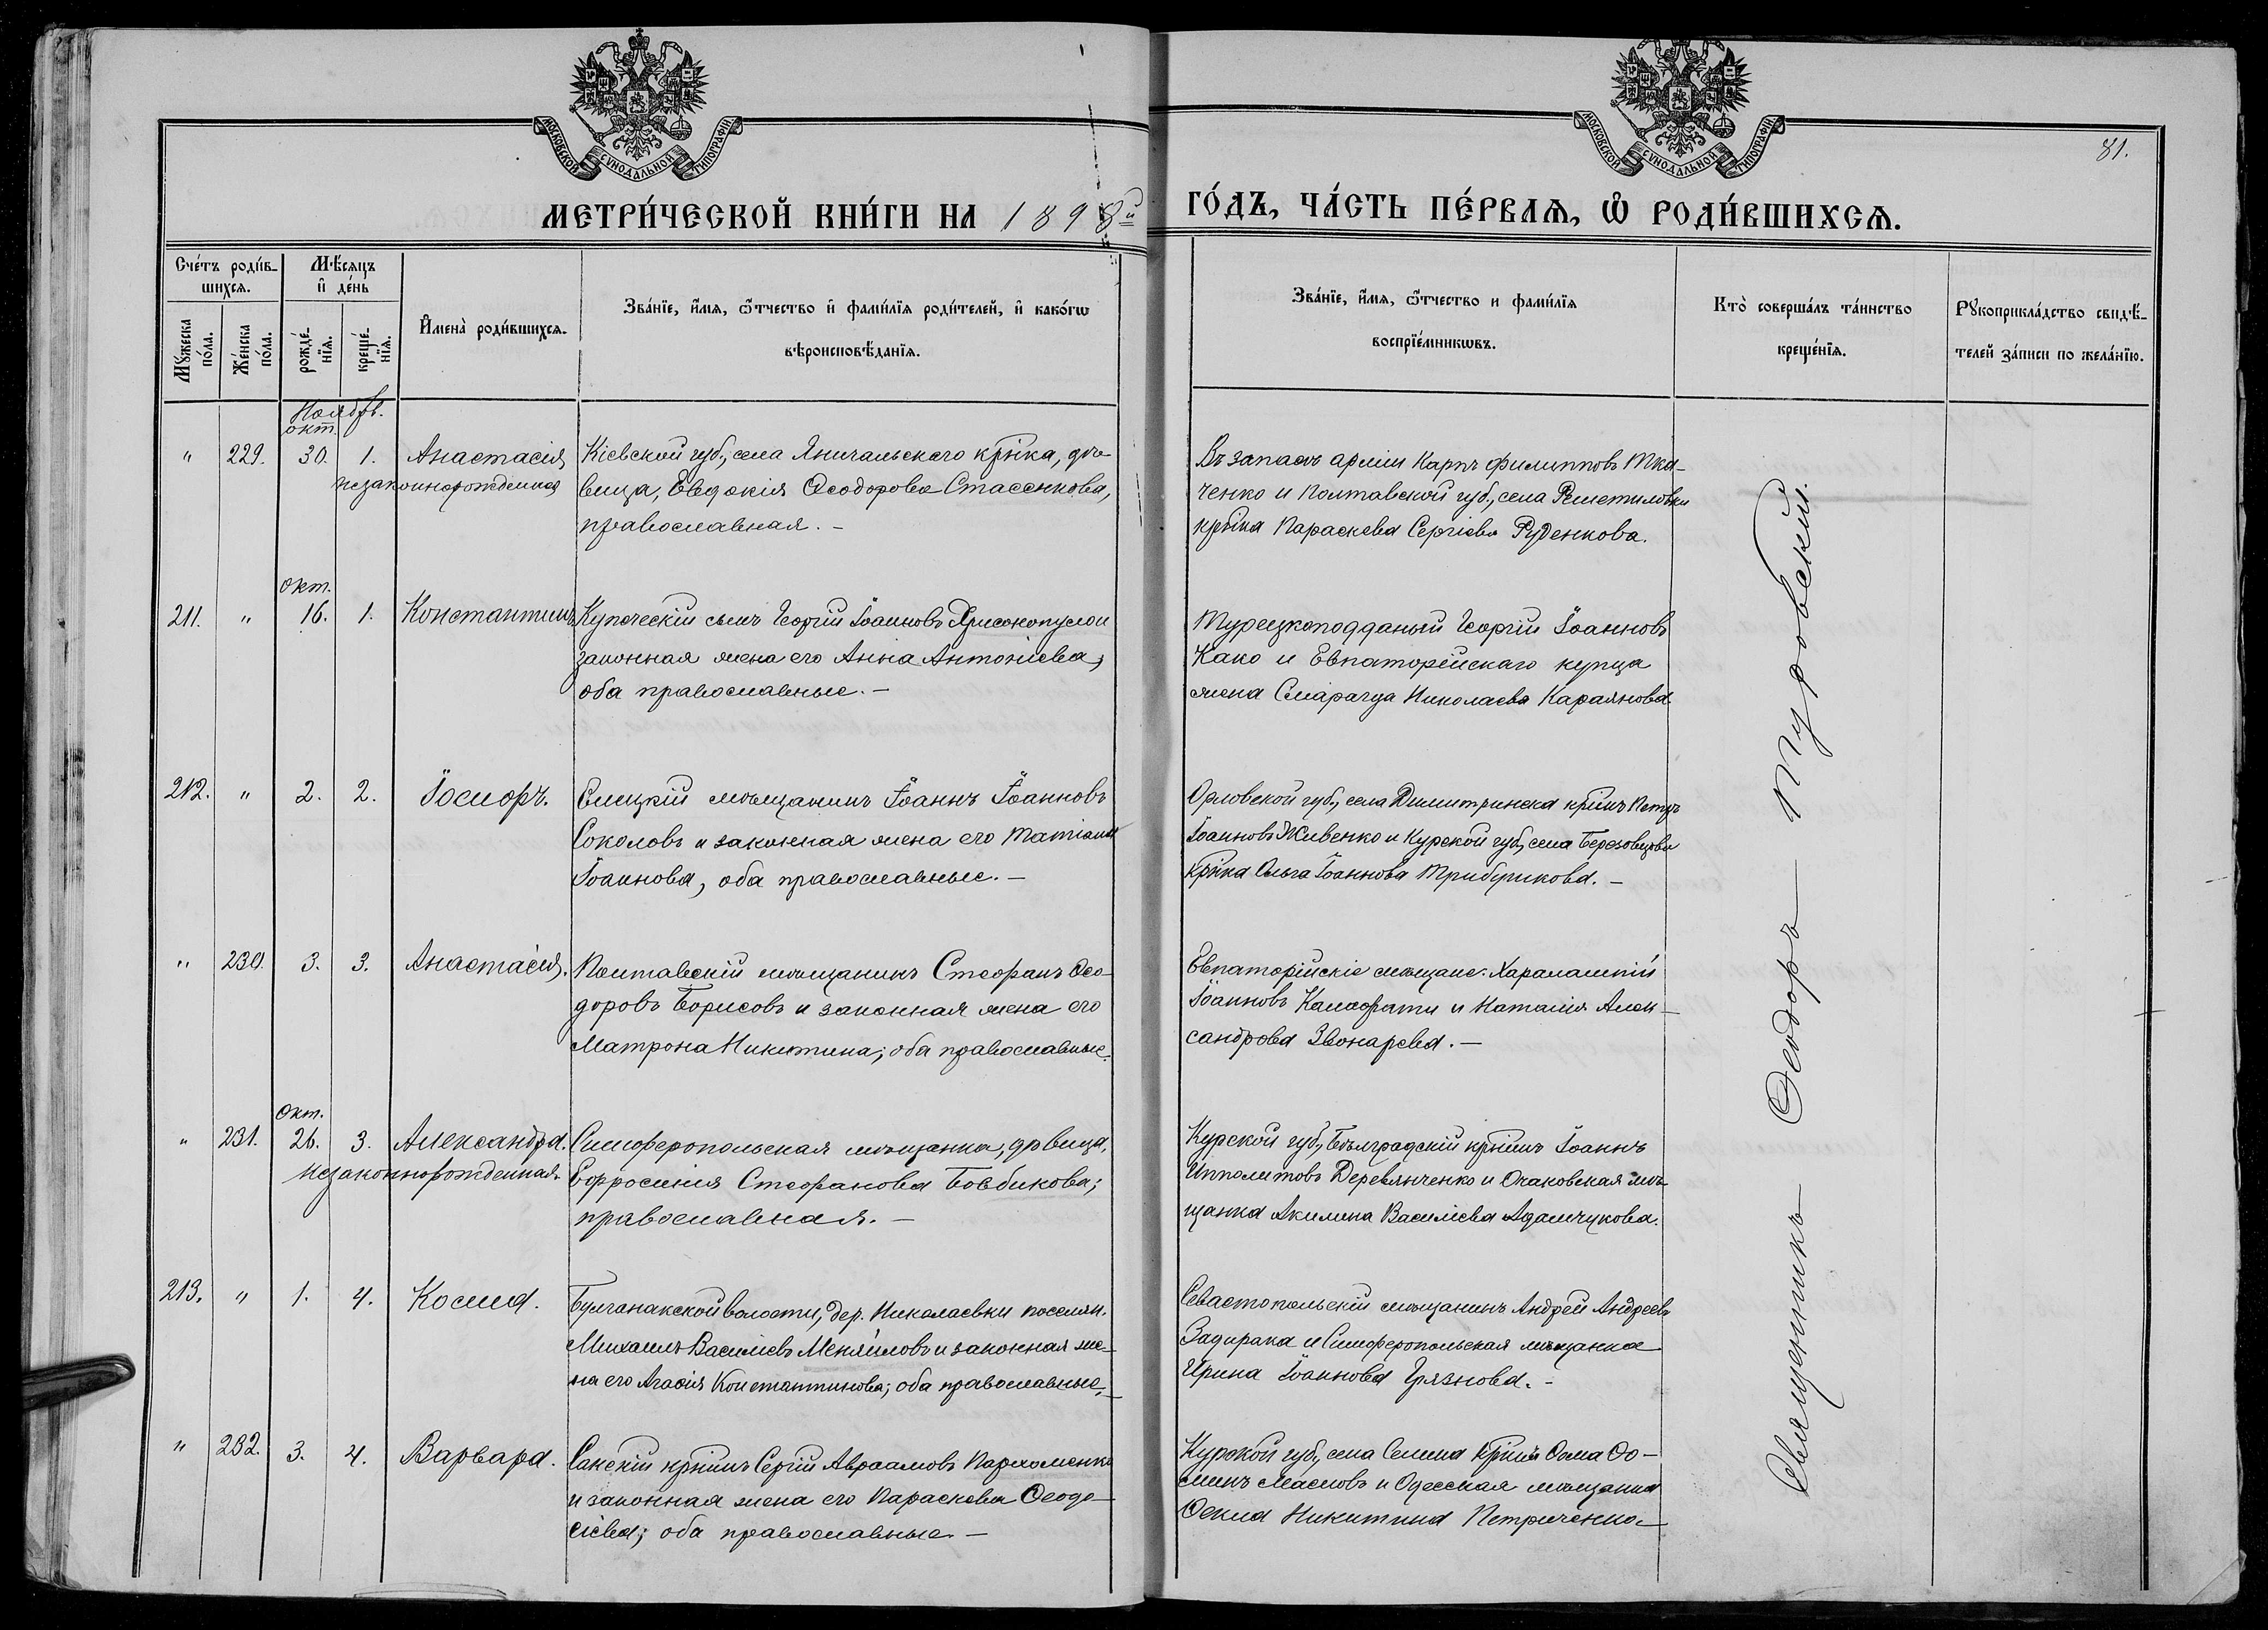 МОСКОВСКОЙ СѴНОДАЛЬНОЙ ТИПОГРАФІИ
МОСКОВСКОЙ СѴНОДАЛЬНОЙ ТИПОГРАФІИ
81.
МЕТРИ́ЧЕСКОЙ КНИ́ГИ НА 1898й ГО́ДЪ, ЧА́СТЬ ПЕ́РВАѦ, Ѡ҆ РОДИ́ВШИХСѦ.
Сче́тъ роди́в-
шихсѧ.
Мѣ́сѧцъ
и҆ де́нь
Мꙋжеска по́ла.
Же́нска по́ла.
рожде́-
нїѧ.
креще́-
нїѧ.
И҆мена̀ роди́вшихсѧ.
Зва́нїе, и҆́мѧ, ѻ҆́тчество и҆ фами́лїѧ роди́телей, и҆ како́гѡ
вѣроисповѣ́данїѧ.
Зва́нїе, и҆́мѧ, ѻ҆́тчество и фами́лїѧ
воспрїе́мникѡвъ.
Кто̀ соверша́лъ та́инство
креще́нїѧ.
Рꙋкоприкла́дство свидѣ́-
телей за́писи по жела́нїю.
Ноябрь.
окт.
" 229. 30. 1. Анастасія
незаконнорожденная
Кіевской губ., села крѣка, дѣ-
вица, Евдокія Ѳеодорова Стасенкова,
православная. -
Въ запасѣ арміи Карпъ Филипповъ Тка-
ченко и Полтавской губ., села Решетиловки
крѣка Параскева Сергіева Руденкова.
окт.
211. " 16. 1. Константинъ
Купеческій сынъ Георгій Іоанновъ Хрисокопулои
законная жена его Анна Антоніева,
оба православные. -
Турецкоподданый Георгій Іоанновъ
Како и Евпаторійскаго купца
жена Смарагда Николаева Караянова.
212. " 2. 2. Іосифъ.
Елецкій мѣщанинъ Іоаннъ Іоанновъ
Соколовъ и законная жена его Татіана
Іоаннова, оба православные. -
Орловской губ., села крѣнъ Петръ
Іоанновъ Живенко и Курской губ., села
крѣка Ольга Іоаннова Трибуникова. -
" 230. 3. 3. Анастасія.
Полтавскій мѣщанинъ Стефанъ Ѳео-
доровъ Борисовъ и законная жена его
Матрона Никитина; оба православные.
Евпаторійскіе мѣщане: Харалампій
Іоанновъ и Наталія Алек-
сандрова Звонарева. -
окт.
" 231. 26. 3. Александра.
незаконнорожденная.
Симферопольская мѣщанка, дѣвица,
Евфросинія Стефанова Бовбикова;
православная. -
Курской губ., Бѣлградскій крѣнъ Іоаннъ
Ипполитовъ Деревянченко и Очаковская мѣ-
щанка Акилина Василіева Адамчукова.
213. " 1. 4. Косма.
Булганакской волости, дер. Николаевки поселян.
Михаилъ Василіевъ Меняйловъ и законная же-
на его Агафія Константинова; оба православные. -
Севастопольскій мѣщанинъ Андрей Андреевъ
Задирака и Симферопольская мѣщанка
Ирина Іоаннова Грязнова. -
" 232. 3. 4. Варвара.
крѣнъ Сергій Авраамовъ Пархоменко
и законная жена его Параскева Ѳеодо-
сіева; оба православные. -
Курской губ., села крѣнъ Ѳома Ѳо-
минъ Масловъ и Одесская мѣщанка
Ѳекла Никитина Петриченко. -
Священникъ - Ѳеодоръ - Туровскій.